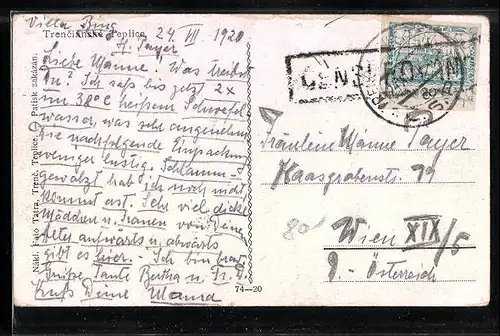 Villa Bing 24. VII. 1920
Trenčianske Teplice.
Liebe Manne! Was treibst
Du? Ich saß bis jetzt 2x
im 38°C heißem Schwefel
wasser, was sehr angenehm
Die nachfolgende Einpackung
weniger lustig. Schlamm-
gewälzt hab' ich noch nicht
kommt erst. Sehr viel dicke
Mädchen u. Frauen von Deine
Alter aufwärts u. abwärts
gibt es hier. Ich bin brav
Grüsse Tante Bertha u. Fr. D.
Kuß Deine Mama
Nákl. Foto Tatra, Trenč. Teplice. Patisk zakázán.
74—20
CENZ
Fräulein Manne Sayer
Haasgrabenstr. 19
80
Wien XIX/5
D.-Österreich